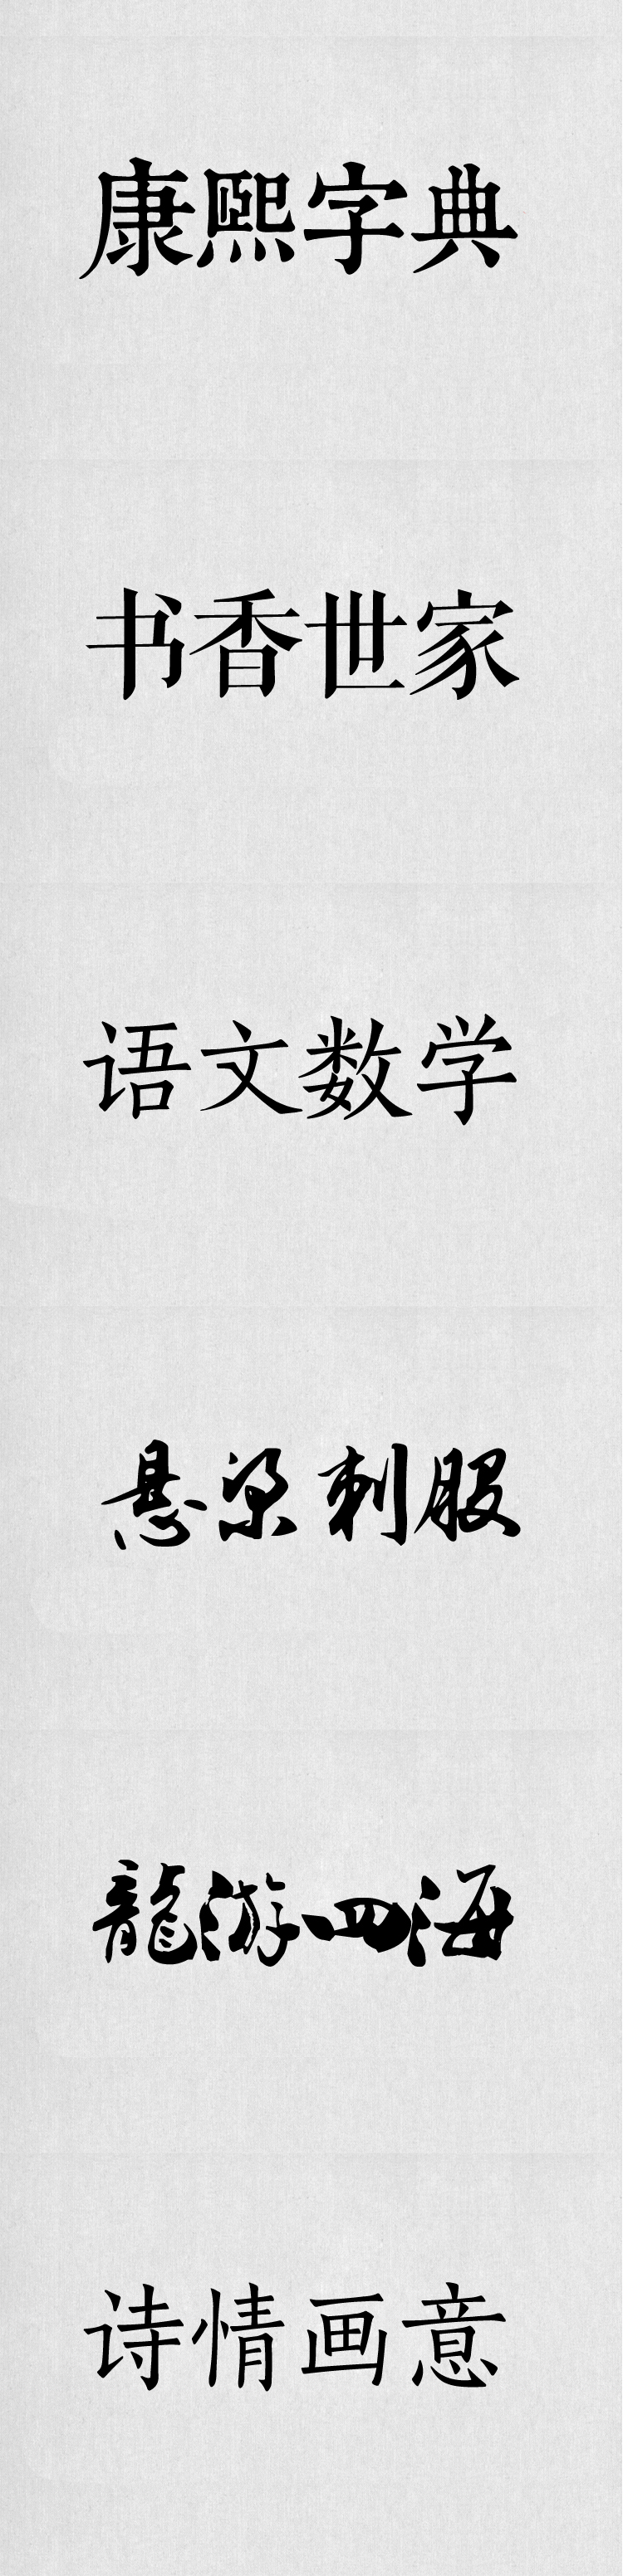 康熙字典
书香世家
语文数学
悬梁刺股
龍游四海
诗情画意